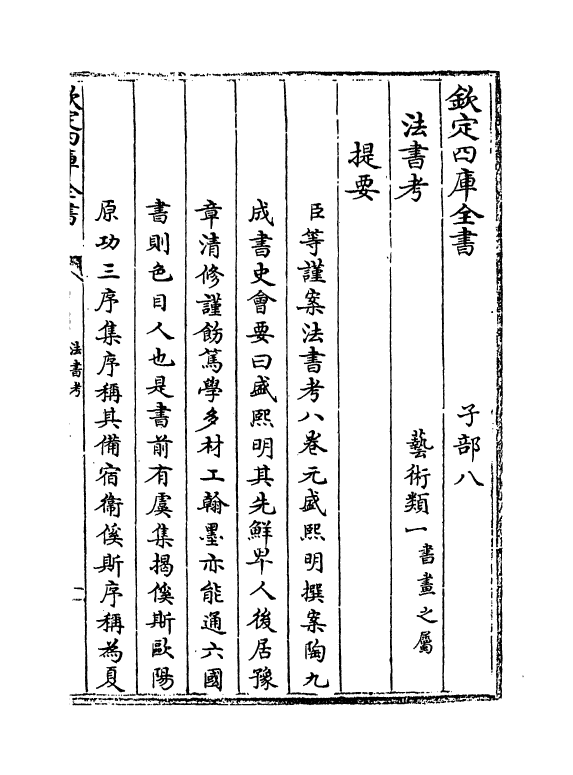 欽定四庫全書　子部八
法書考　藝術類一書畫之屬
提要
臣等謹案法書考八卷元盛熙明撰案陶九
成書史會要曰盛熙明其先鮮卑人後居豫
章清修謹飭篤學多材工翰墨亦能通六國
書則色目人也是書前有虞集揭傒斯歐陽
原功三序集序稱其備宿衛傒斯序稱為夏
欽定四庫全書
法書考
一